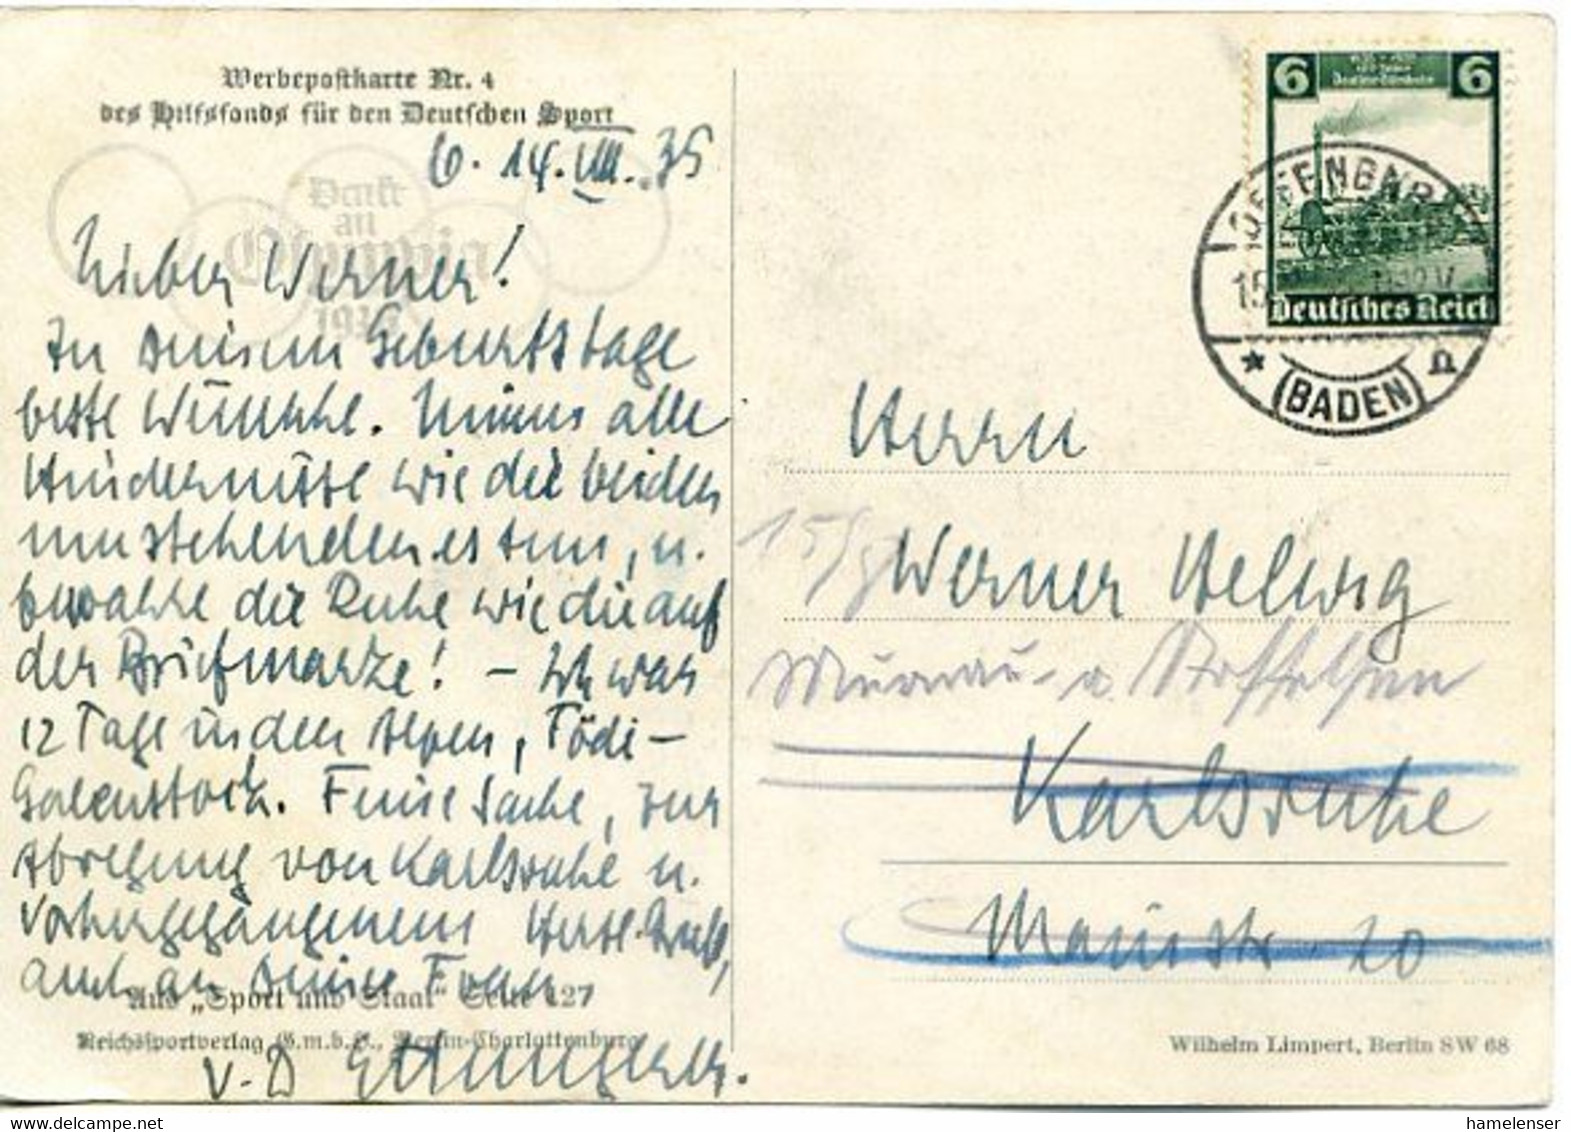 Werbepostkarte Nr. 4
des Hilfsfonds für den Deutschen Sport
14. VIII. 35
Denkt
an
Olympia
1936
Lieber Werner!
Zu Deinem Geburtstage
beste Wünsche. Nimm alle
Hindernisse wie die beiden
umstehenden es tun, u.
bewahre die Ruhe wie die auf
der Briefmarke! – Ich war
12 Tage in den Alpen, Tödi –
Galenstock. Feine Sache, zur
Abregung von Karlsruhe u.
Vorhergegangenem Herzl. Gruß,
auch an Deine Frau
Aus „Sport und Staat" Seite 127
Reichssportverlag G.m.b.H., Berlin-Charlottenburg
6 6
Deutsches Reich
OFFENBURG
15
V
* (BADEN)
Herrn
Werner Helwig
Murnau - a. Staffelsee
Karlsruhe
20
Wilhelm Limpert, Berlin SW 68
hamelenser